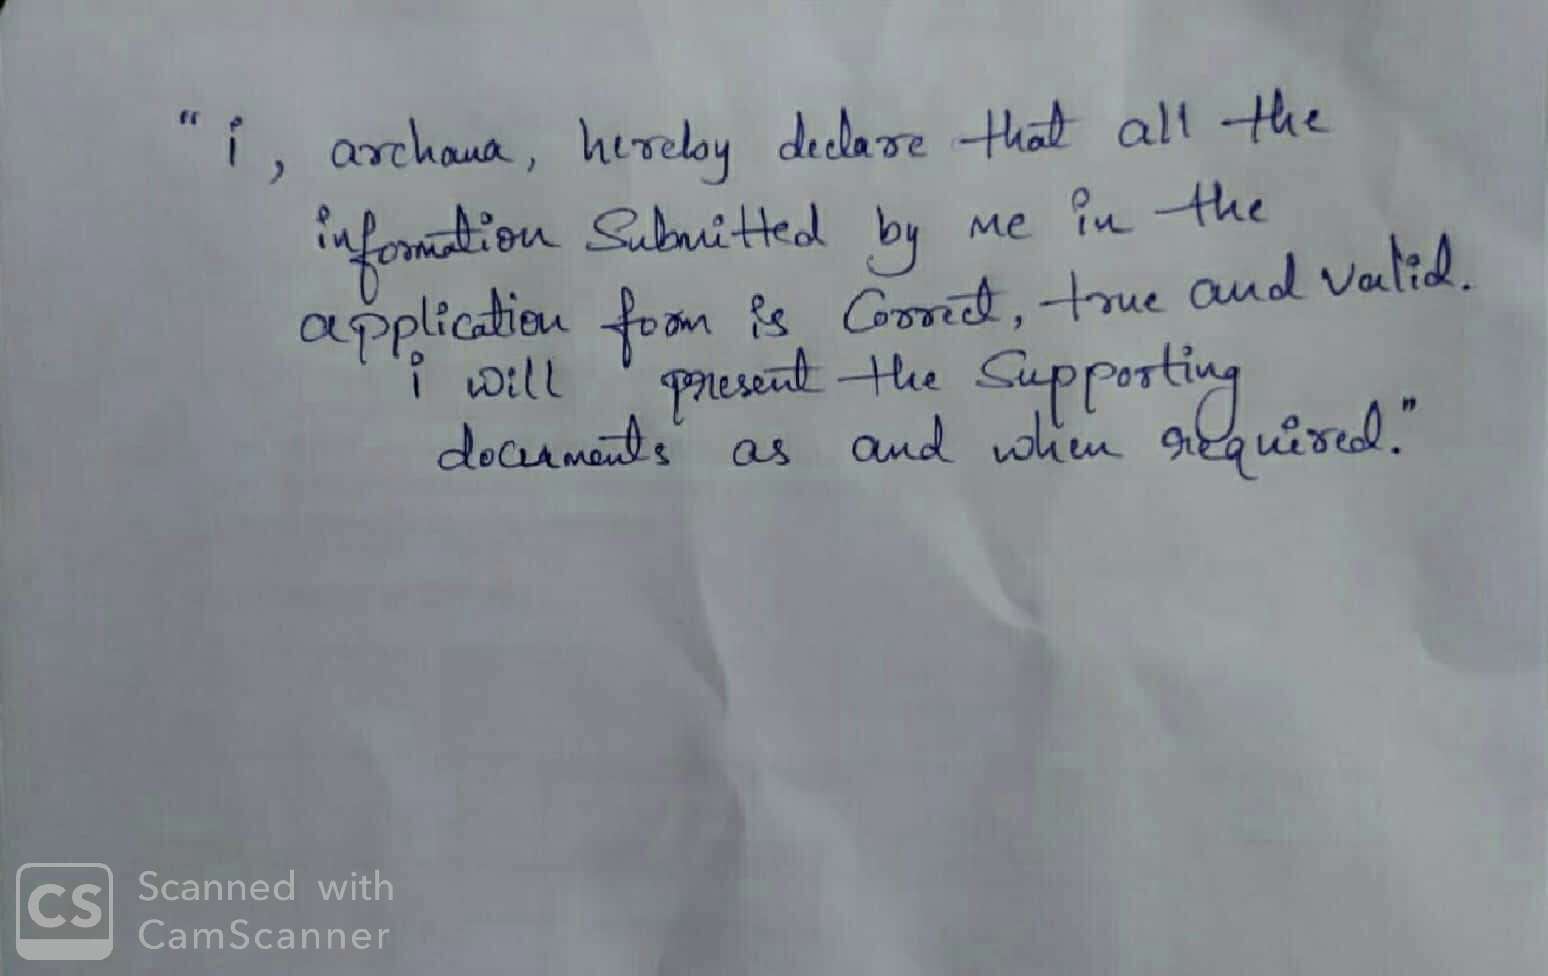 "i, archana, hereby declare that all the
information Submitted by me in the
application form is Correct, true and valid.
i will present the Supporting
documents as and when required."
CS Scanned with
CamScanner